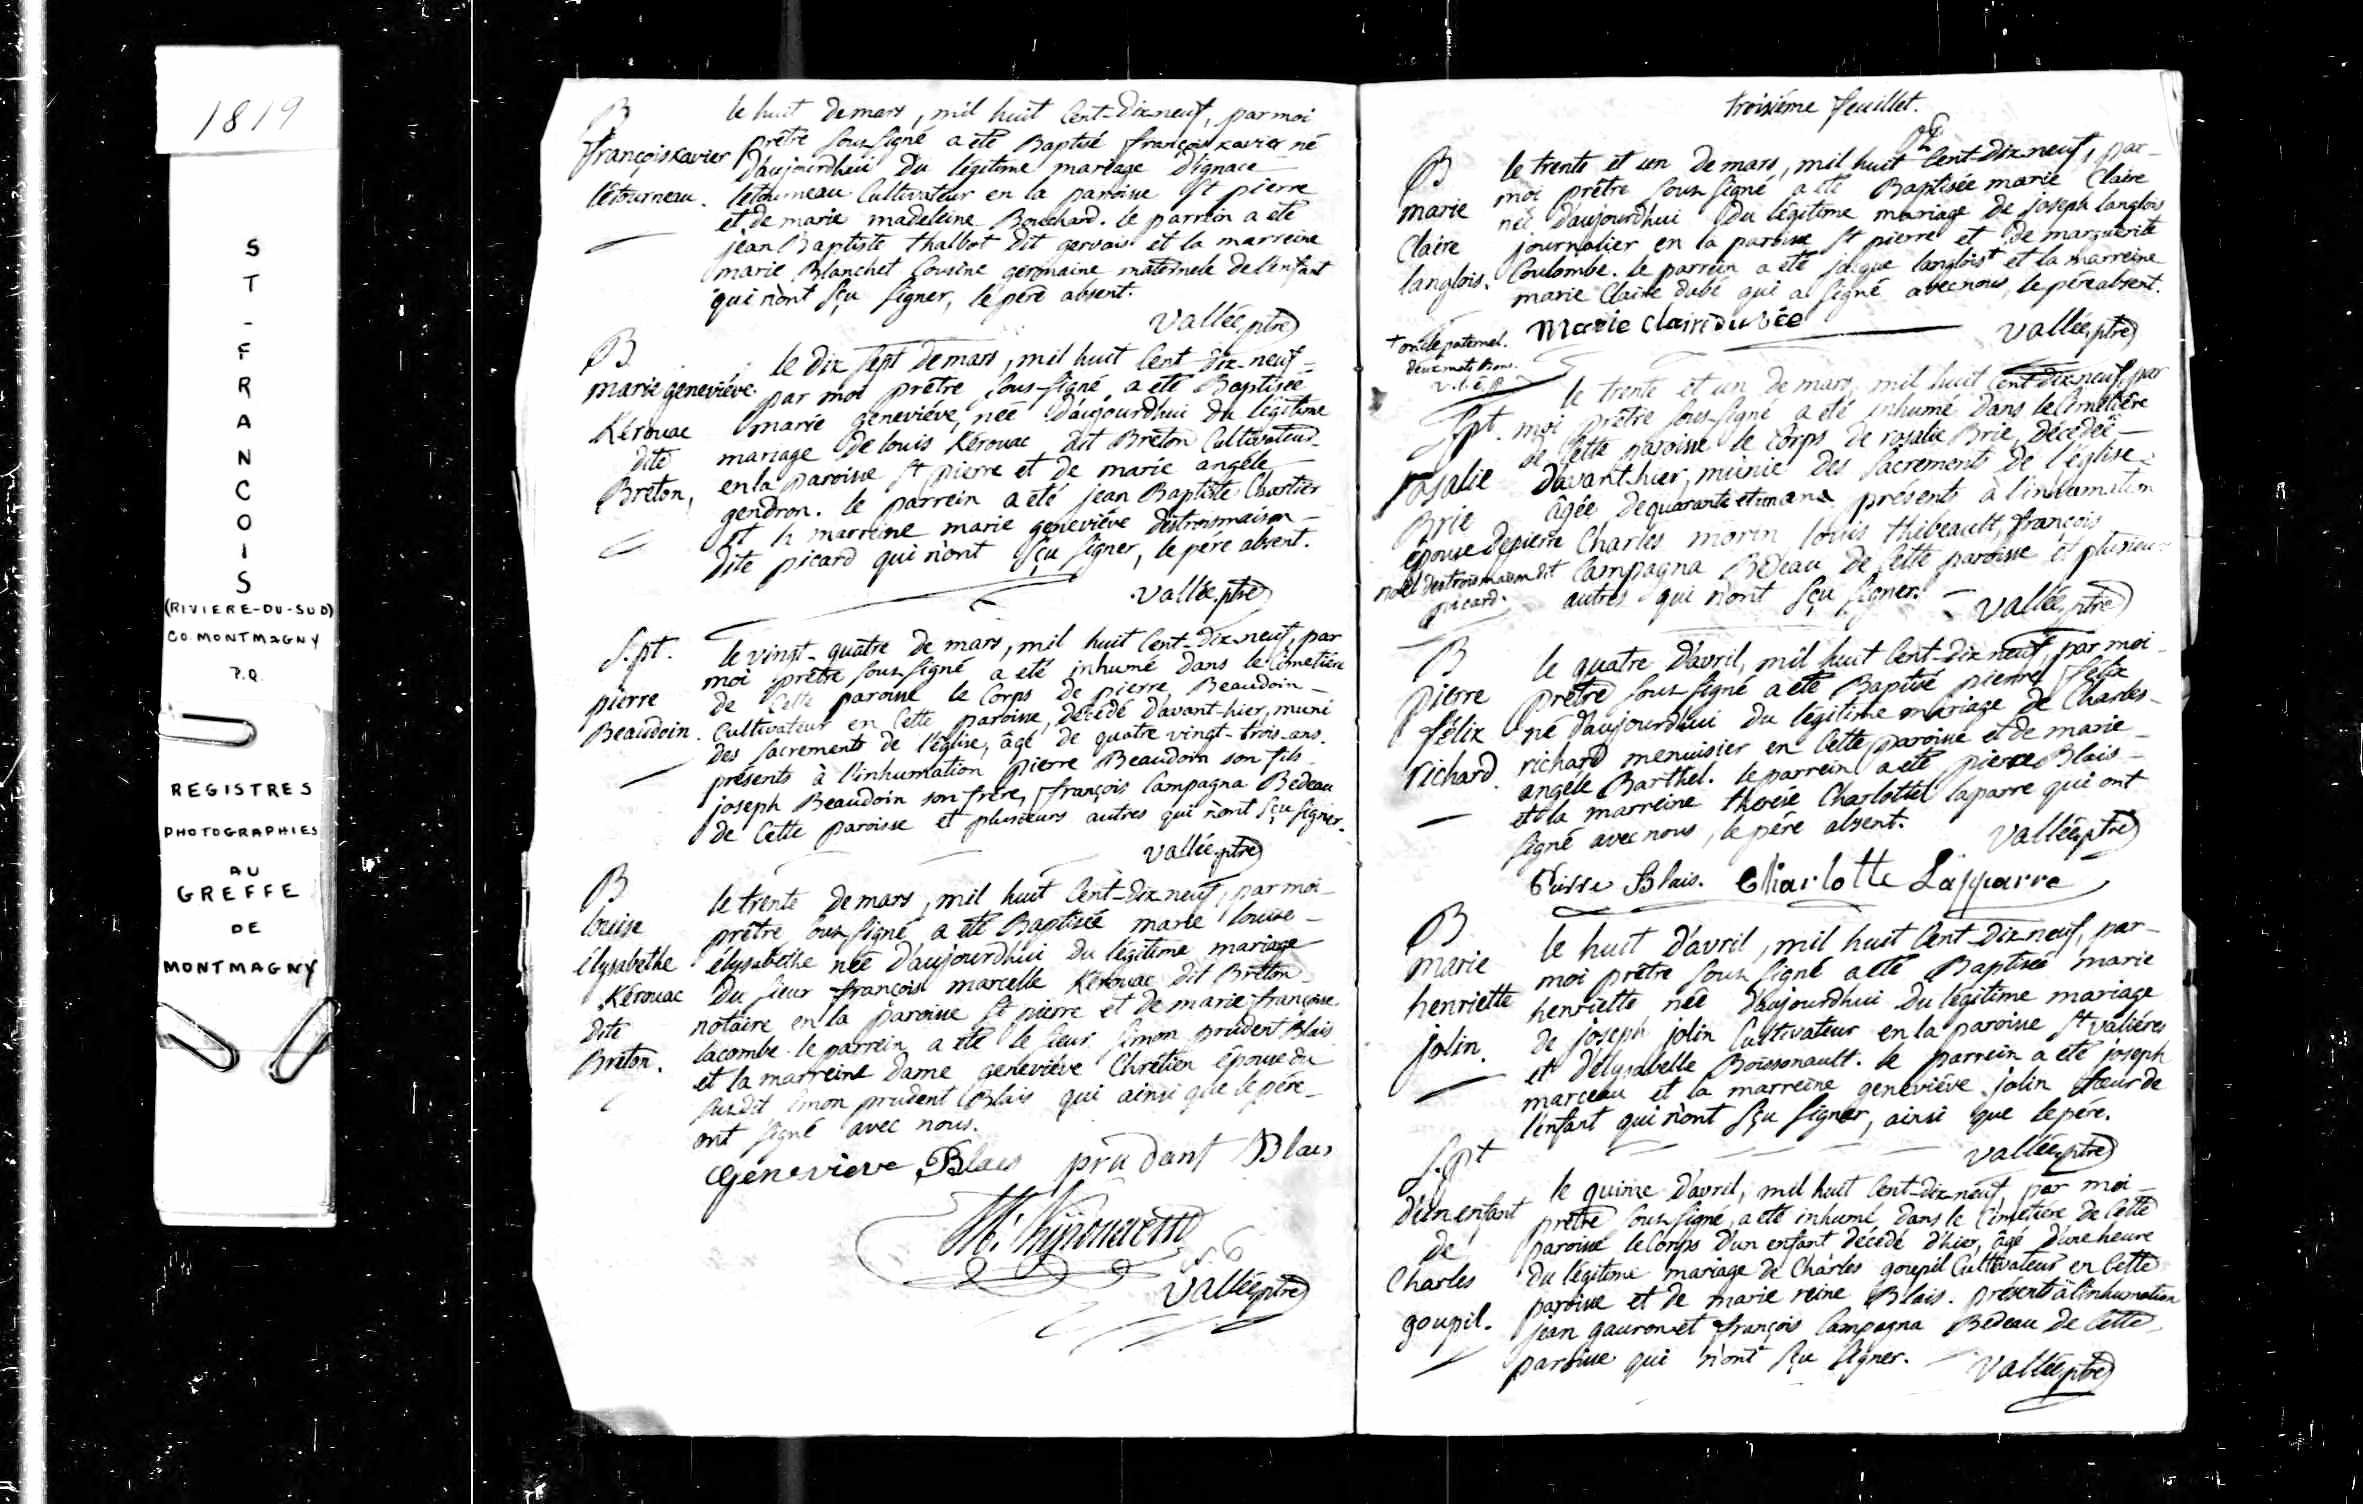 1819
S
T
-
F
R
A
N
C
O
I
S
(RIVIERE-DU-SUD)
CO. MONTMAGNY
P.Q.
REGISTRES
PHOTOGRAPHIES
AU
GREFFE
DE
MONTMAGNY
B
françois xavier
létourneau.
le huit de mars, mil huit Cent-Dix-neuf, par moi
prêtre sous-signé a été Baptisé françois xavier né
d'aujourd'hui Du légitime mariage D'ignace
létourneau Cultivateur en la paroisse St pierre
et de marie madeleine Bouchard. le parrein a été
jean Baptiste thalbot Dit gervais et la marreine
marie Blanchet Cousine germaine maternele de l'enfant
qui n'ont sçu signer, le pére absent.
Vallée ptre
B
marie geneviéve
Kérouac
dite
Breton,
le Dix sept de mars, mil huit Cent-Dix-neuf
par moi prêtre sous-signé a été Baptisée
marie geneviéve, née D'aujourd'hui du légitime
mariage De louis Kérouac dit Breton Cultivateur
en la paroisse St pierre et de marie angéle
gendron. le parrein a été jean Baptiste Chartier
et la marreine marie geneviéve destroismaison
Dite picard qui n'ont sçu signer, le pére absent.
Vallée ptre
S.pt.
pierre
Beaudoin.
le vingt-quatre de mars, mil huit Cent-Dix-neuf, par
moi prêtre sous-signé a été inhumé Dans le Cimetiére
de Cette paroisse le Corps de pierre Beaudoin
Cultivateur en Cette paroisse, décédé D'avant-hier, muni
Des sacrements de l'église, âgé de quatre vingt-trois-ans.
présents à l'inhumation pierre Beaudoin son fils
joseph Beaudoin son frére, françois Campagna Bedeau
de Cette paroisse et plusieurs autres qui n'ont sçu signer.
Vallée ptre
B
louise
élysabethe
Kérouac
dite
Breton.
le trente de mars, mil huit Cent-Dix-neuf, par moi
prêtre sous signé a été Baptisée marie louise
élysabéthe née D'aujourd'hui Du légitime mariage
Du sieur françois marcelle Kérouac Dit Breton
notaire en la paroisse St pierre et de marie françoise
lacombe. le parrein a été le sieur Simon prudent Blais
et la marreine Dame geneviéve Chrétien épouse du
susdit simon prudent Blais qui ainsi que le pére
ont signé avec nous.
Genevieve Blais prudant Blais
Vallée ptre
troisiéme feuillet.
B
marie
Claire
langlois.
le trente et un de mars, mil huit Cent-Dix-neuf, par
moi prêtre sous signé a été Baptisée marie Claire
née D'aujourd'hui Du légitime mariage de joseph langlois
journalier en la paroisse St pierre et de marguerite
Coulombe. le parrein a été jacque langlois+ et la marreine
marie Claire dubé qui a signé avec nous, le pére absent.
+ oncle paternel.
deux mots Bons.
Marie claire dubée
Vallée ptre
Spt.
rosalie
Brie
épouse de pierre
noël destroismaison dit
picard.
le trente et un de mars, mil huit Cent-Dix-neuf, par
moi prêtre sous-signé a été inhumé Dans le Cimetiére
de Cette paroisse le Corps de rosalie Brie, décédée
D'avant-hier, munie Des sacrements De l'église
âgée de quarante et un ans présents à l'inhumation
Charles morin louis thibeault, françois
Campagna Bedeau de Cette paroisse et plusieurs
autres qui n'ont sçu signer.
Vallée ptre
B
pierre
félix
richard.
le quatre D'avril, mil huit Cent-Dix neuf, par moi
prêtre sous signé a été Baptisé pierre félix
né D'aujourd'hui Du légitime mariage de Charles
richard menuisier en Cette paroisse et de marie
angéle Barthel. le parrein a été pierre Blais
et la marreine therése Charlotte laparre qui ont
signé avec nous, le pére absent.
Vallée ptre
Pierre Blais. Charlotte Lapparre
B
marie
henriette
jolin.
le huit D'avril, mil huit Cent-Dix-neuf, par
moi prêtre sous signé a été Baptisée marie
henriette née D'aujourd'hui Du légitime mariage
de joseph jolin Cultivateur en la paroisse St valiéres
et D'élysabelle Boissonault. le parrein a été joseph
marceau et la marreine geneviéve jolin sœur de
l'enfant qui n'ont sçu signer, ainsi que le pére.
Vallée ptre
S.pt
D'un enfant
de
Charles
goupil.
le quinze D'avril, mil huit Cent-Dix-neuf, par moi
prêtre sous signé, a été inhumé Dans le Cimetiére de Cette
paroisse le Corps D'un enfant décédé D'hier, âgé D'une heure
Du légitime mariage de Charles goupil Cultivateur en Cette
paroisse et de marie reine Blais. présents à l'inhumation
jean gauron et françois Campagna Bedeau de Cette
paroisse qui n'ont sçu signer.
Vallée ptre